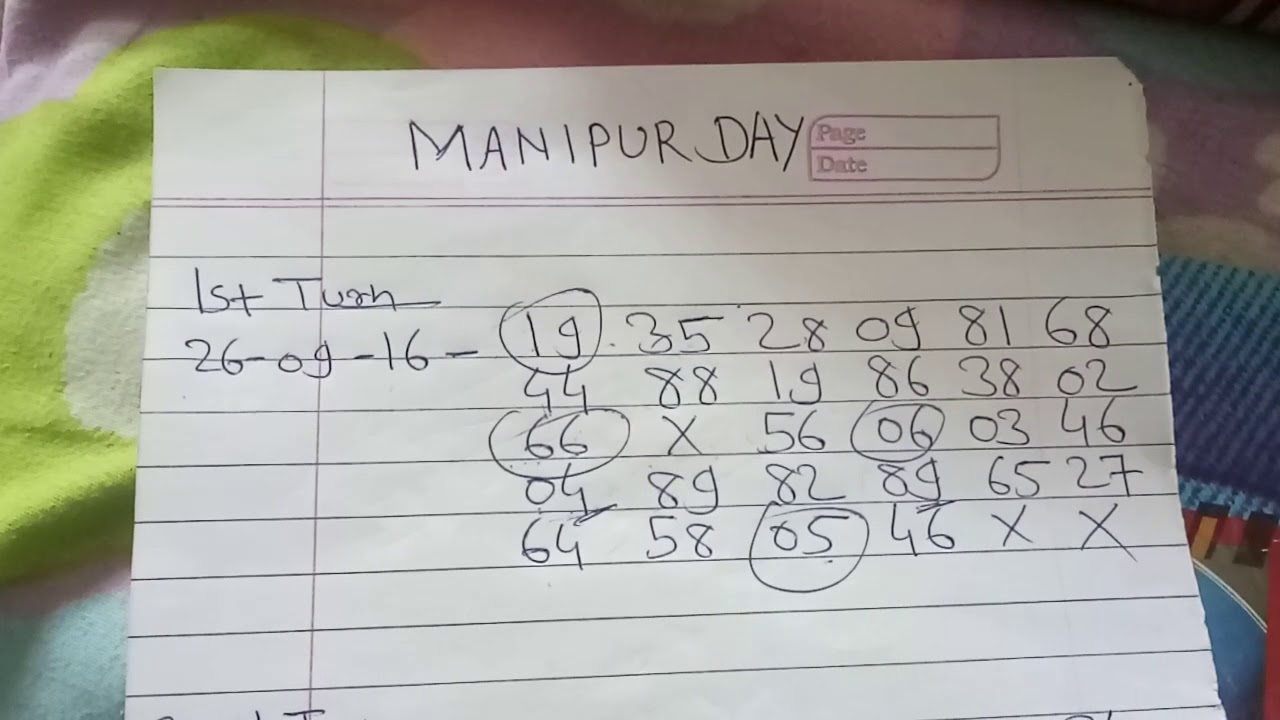 MANIPUR DAY
Page
Date
1st Turn
26-09-16- 19 35 28 09 81 68
44 88 19 86 38 02
66 X 56 06 03 46
04 89 82 89 65 27
64 58 05 46 X X